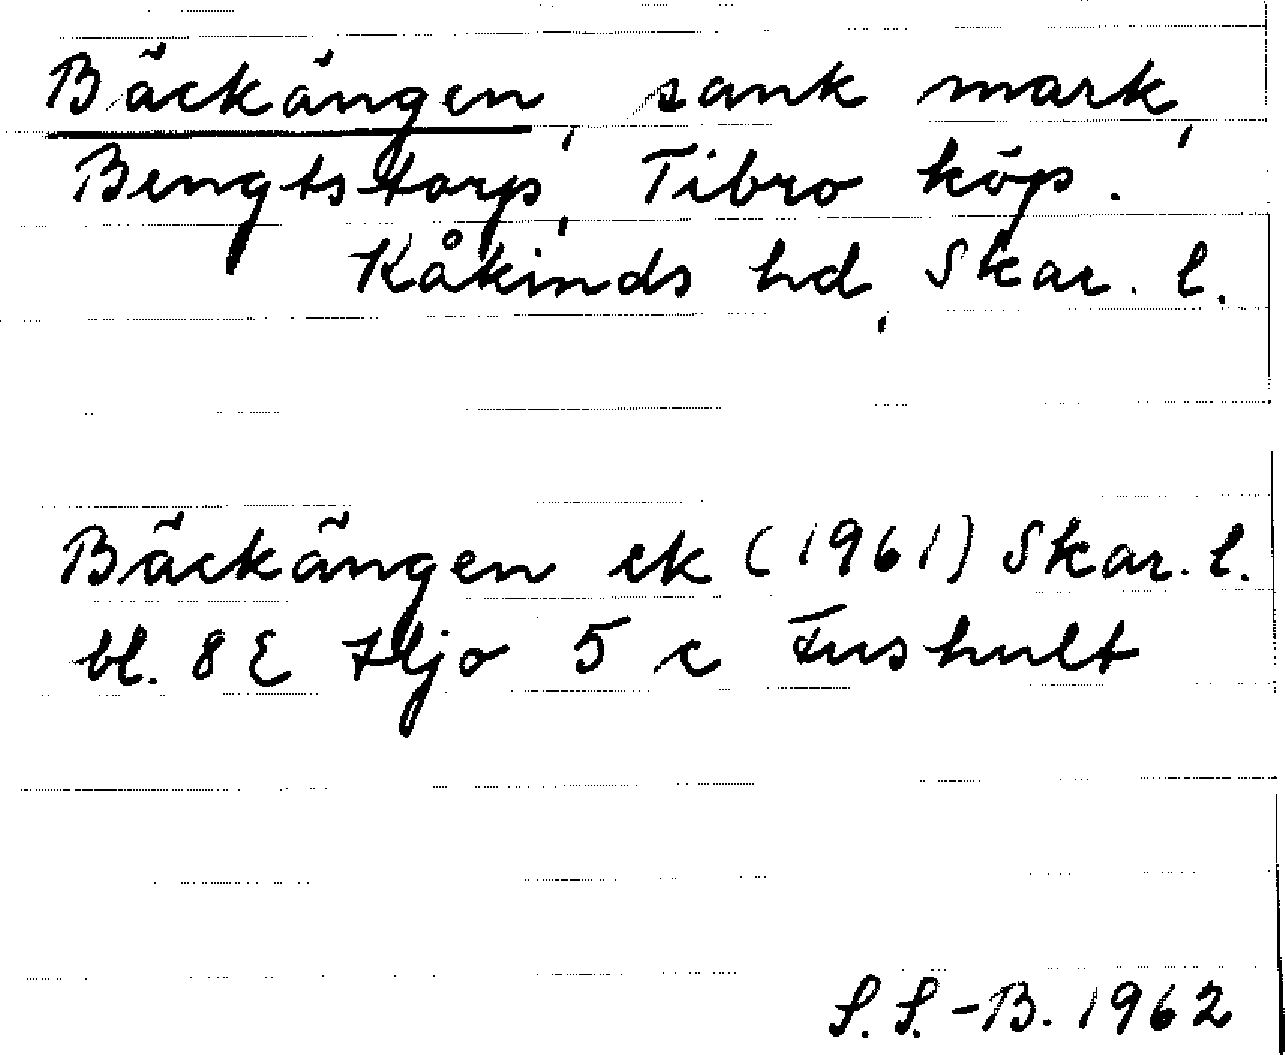 Bäckängen, sank mark,
Bengtstorp, Tibro köp.
Kåkinds hd, Skar. l.
Bäckängen ek (1961) Skar. l.
bl. 8 E Hjo 5 c Fushult
S. S.-B. 1962